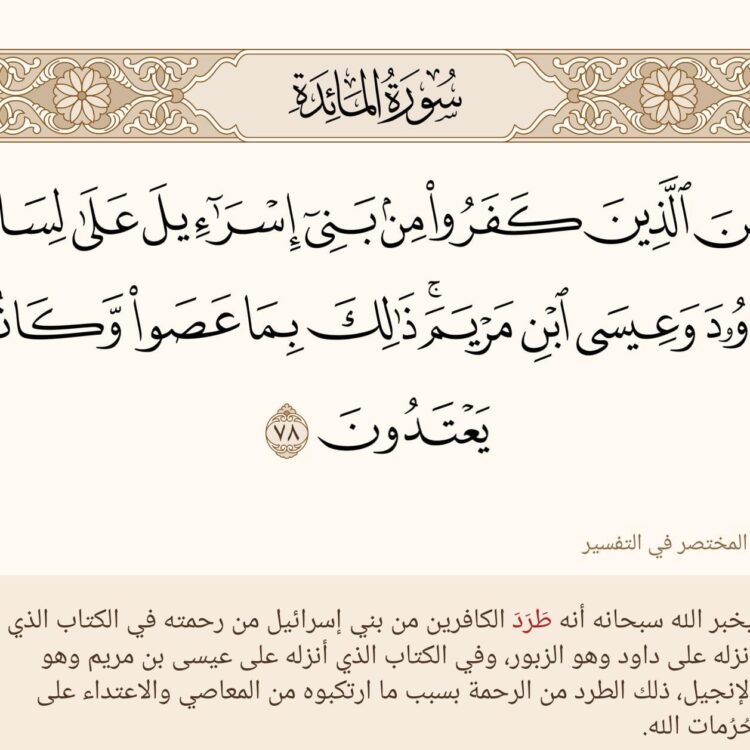 سُورَةُ المَائِدَةِ
ٱلَّذِينَ كَفَرُواْ مِنۢ بَنِيٓ إِسۡرَـٰٓءِيلَ عَلَىٰ
وَعِيسَى ٱبۡنِ مَرۡيَمَۚ ذَٰلِكَ بِمَا عَصَواْ
يَعۡتَدُونَ ٧٨
المختصر في التفسير
يخبر الله سبحانه أنه طَرَدَ الكافرين من بني إسرائيل من رحمته في الكتاب الذي
على داود وهو الزبور، وفي الكتاب الذي أنزله على عيسى بن مريم وهو
ذلك الطرد من الرحمة بسبب ما ارتكبوه من المعاصي والاعتداء على
حُرُمات الله.